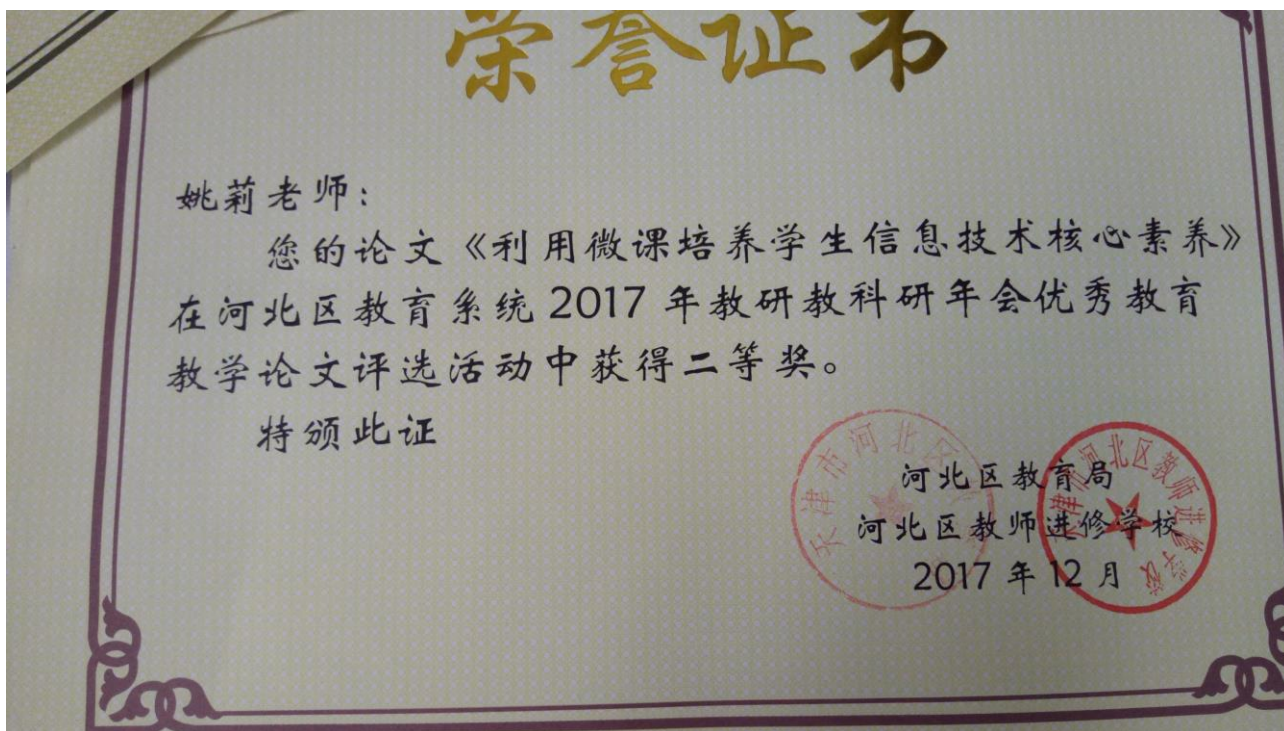 荣誉证书
姚莉老师：
您的论文《利用微课培养学生信息技术核心素养》
在河北区教育系统2017年教研教科研年会优秀教育
教学论文评选活动中获得二等奖。
特颁此证
河北区教育局
河北区教师进修学校
2017年12月
天津市河北区
天津市河北区教师进修学校